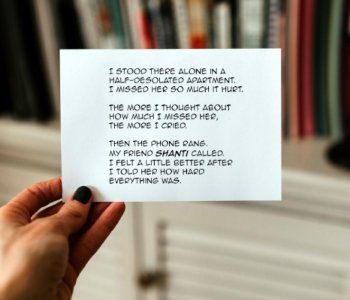 I STOOD THERE ALONE IN A
HALF-DESOLATED APARTMENT.
I MISSED HER SO MUCH IT HURT.
THE MORE I THOUGHT ABOUT
HOW MUCH I MISSED HER,
THE MORE I CRIED.
THEN THE PHONE RANG.
MY FRIEND SHANTI CALLED.
I FELT A LITTLE BETTER AFTER
I TOLD HER HOW HARD
EVERYTHING WAS.